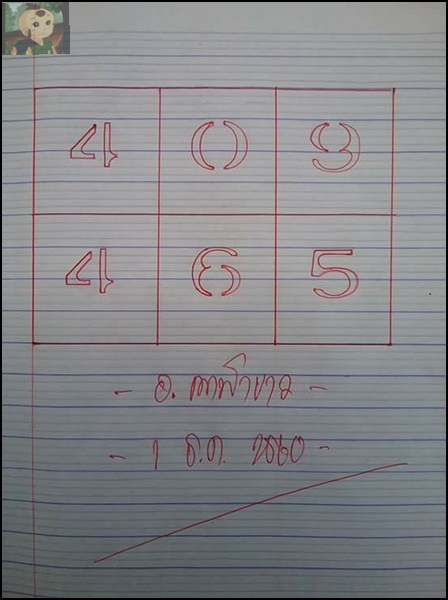 4 0 9
4 6 5
- อ. -
- 1 ธ.ค. 2560 -